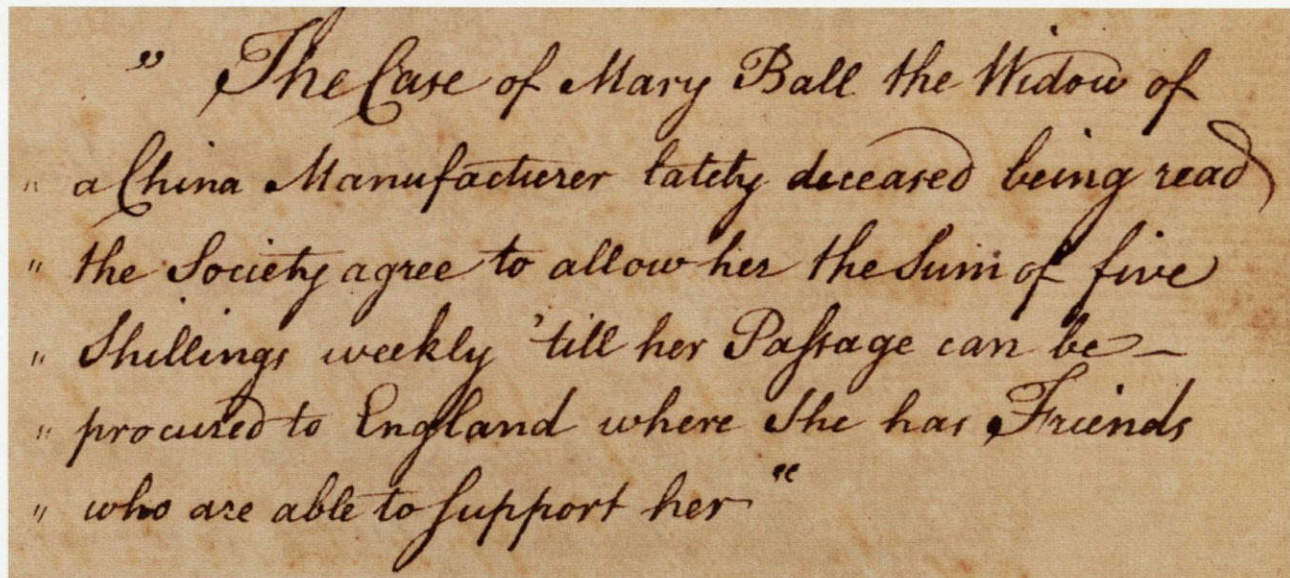 ” The Case of Mary Ball the Widow of
" a China Manufacturer lately deceased being read
" the Society agree to allow her the Sum of five
" Shillings weekly 'till her Paſsage can be –
" procured to England where She has Friends
" who are able to ſupport her “